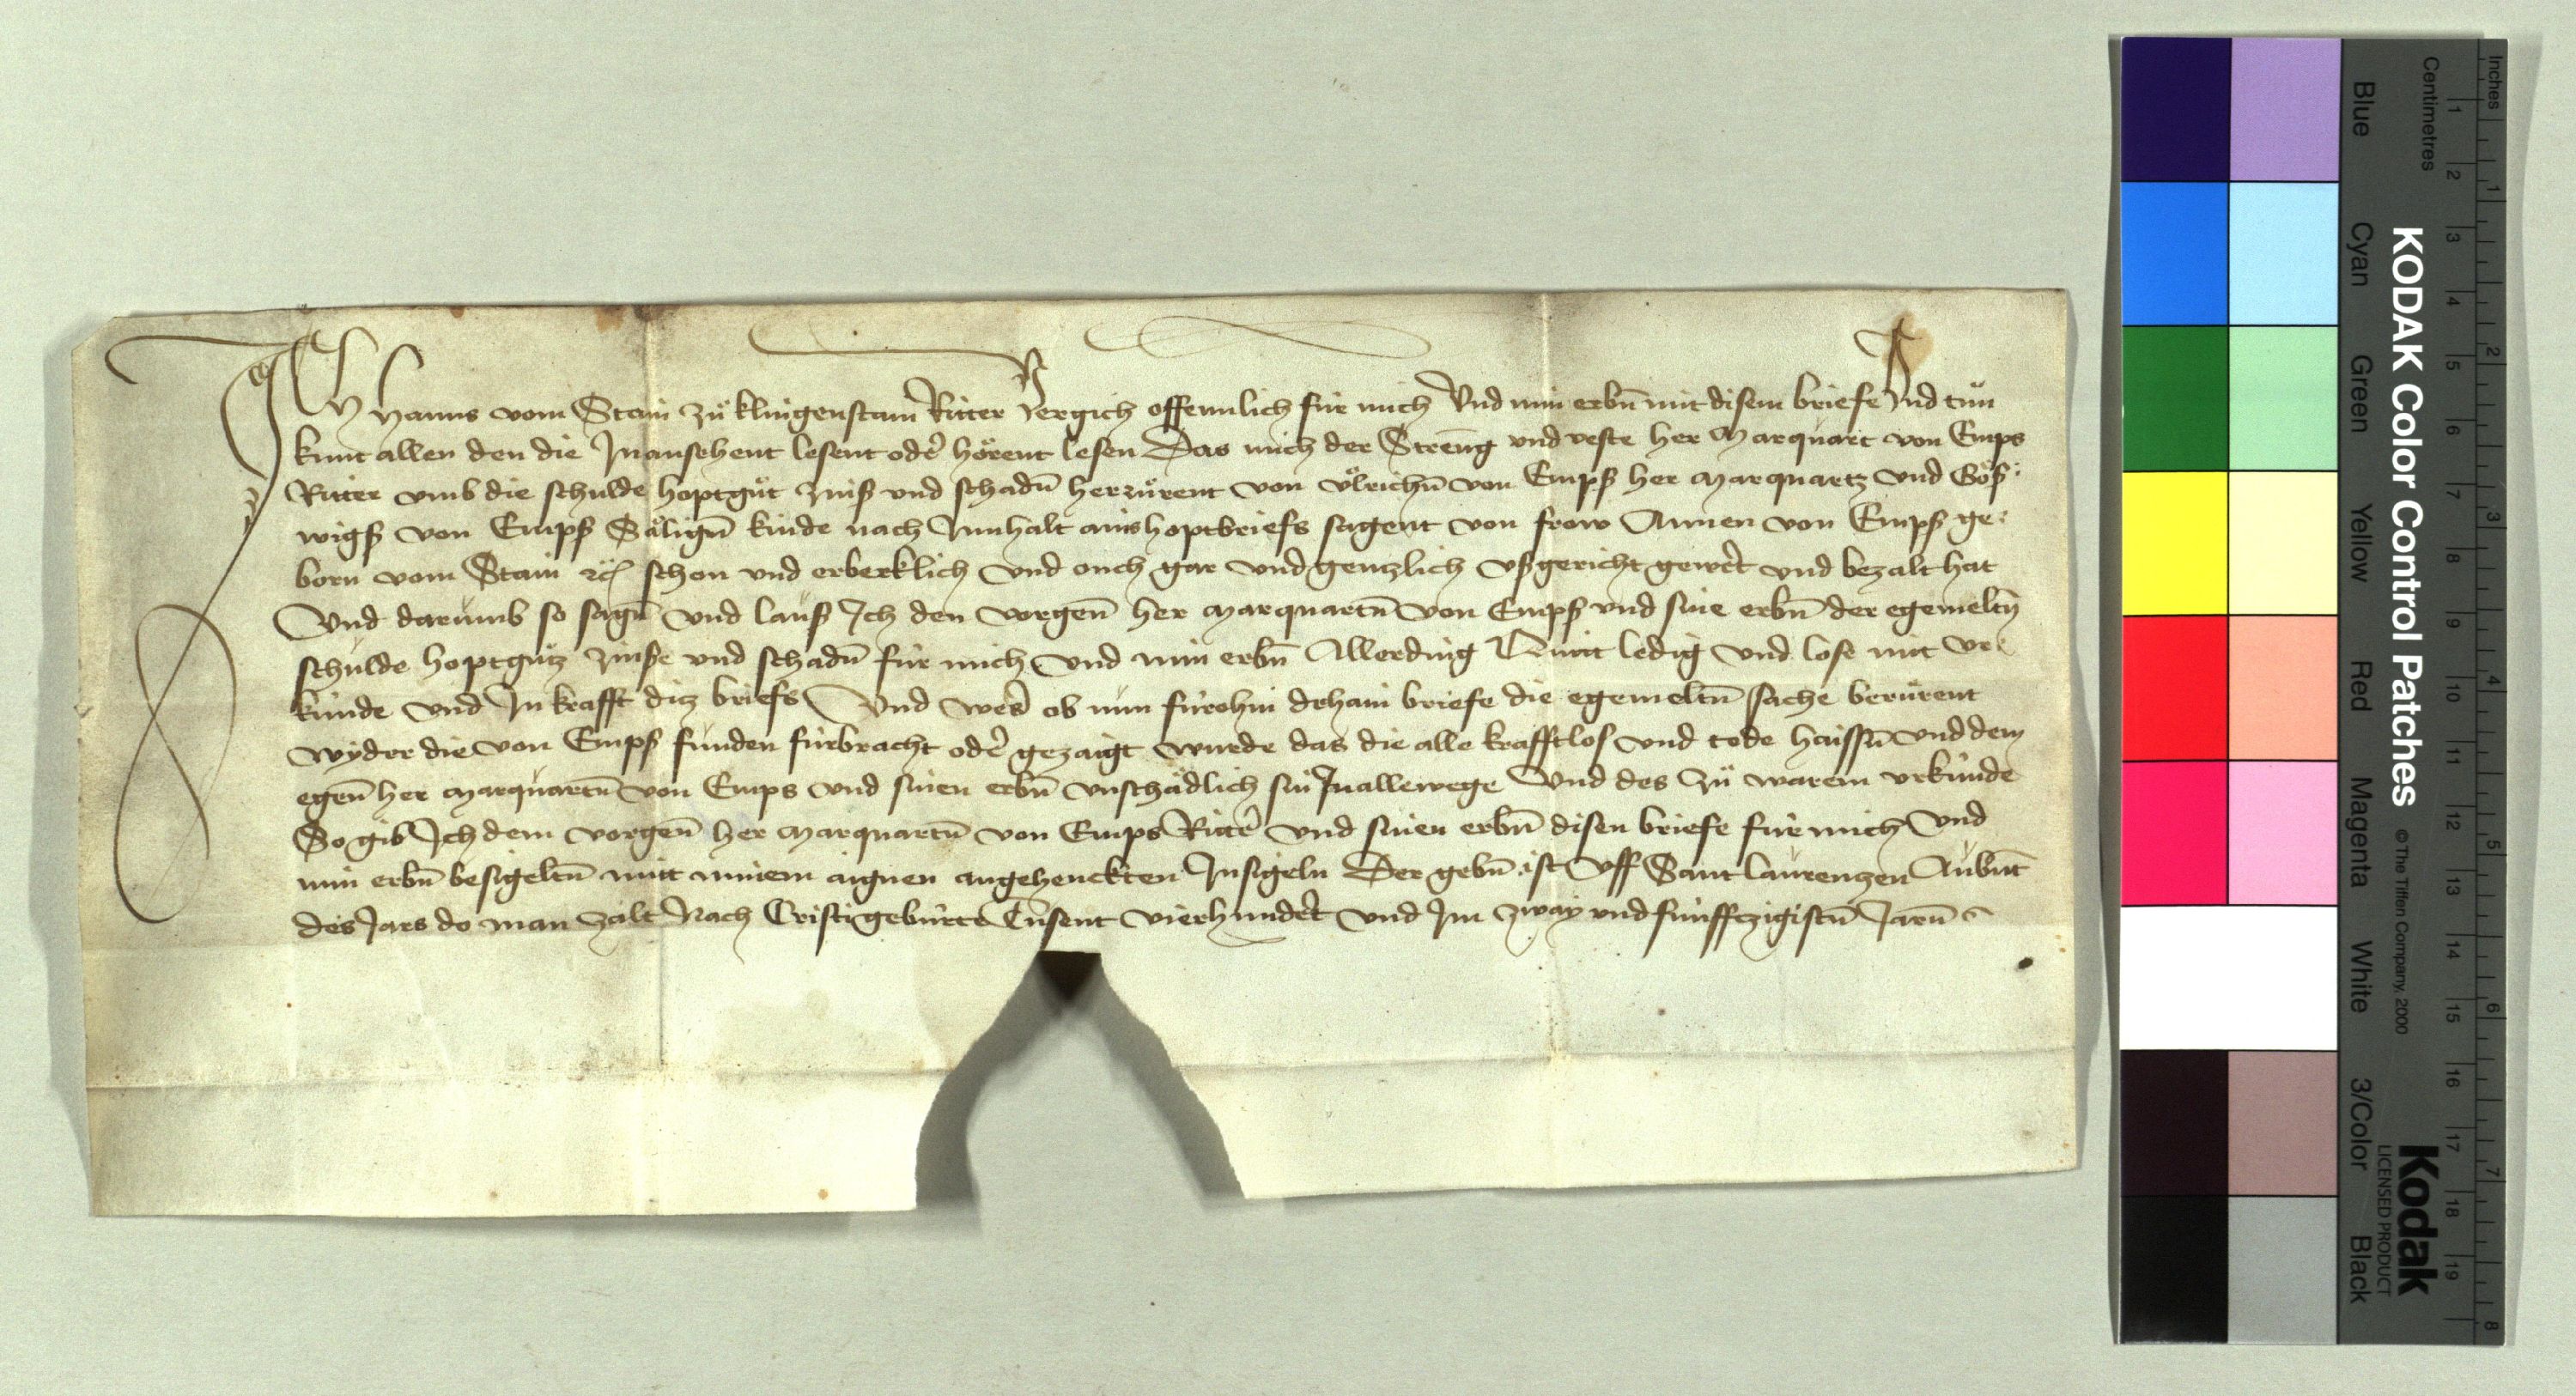 Ich Hanns vom Stain zů klingenstain Ritter Vergich offennlich für mich Vnd min erbn̄ mit disem briefe Vnd tůn
kunt allen den die In ansehent lesent oder hörent lesen Das mich der Streng vnd veste her Marquart von Emps
Ritter vmb die schulde hoptgůt zinß vnd schadn̄ herzůrent von Ůlrichn̄ von Empß her Marquartz vnd Göß:
wigß von Empß Sälign̄ kinde nach Innhalt ains hoptbriefs sagent von frow Annen von Empß ge:
born vom Stain ꝛc̄ schon vnd erberklich vnd ouch gar vnd gentzlich vßgericht gewert vnd bezalt hat
Vnd darumb so sagn̄ vnd lauß Ich den vorgen̄ her Marquartn̄ von Empß vnd sine erbn̄ der egemeltn̄
schulde hoptgůtz zinße vnd schadn̄ für mich vnd min erbn̄ Allerding Quitt ledig vnd lose mit vr:
kunde vnd In krafft ditz briefs Vnd wer ob nun fürohin dehain briefe die egemeltn̄ sache berürent
wyder die von Empß funden fürbracht oder gezaigt wurde das die alle krafftlos vnd tode haissn̄ vnd dem
egen̄ her Marquartn̄ von Emps vnd sinen erbn̄ vnschädlich sin In allewege Vnd des zů warem vrkünde
So gib Ich dem vorgen̄ her Marquartn̄ von Emps Ritter vnd sinen erbn̄ disen briefe für mich vnd
min erbn̄ besigeltn̄ mitt minem aignen angehenckten Insigeln Der gebn̄ ist vff Sant laurentzen Aubn̄t
des Jars do man zalt Nach Cristi gebürte Tusent vierhundert vnd Im zway vnd fünfftzigistn̄ Jarn̄
Inches
Centimetres
KODAK Color Control Patches © The Tiffen Company, 2000
Kodak
LICENSED PRODUCT
Blue Cyan Green Yellow Red Magenta White 3/Color Black
1 2 3 4 5 6 7 8
1 2 3 4 5 6 7 8 9 10 11 12 13 14 15 16 17 18 19